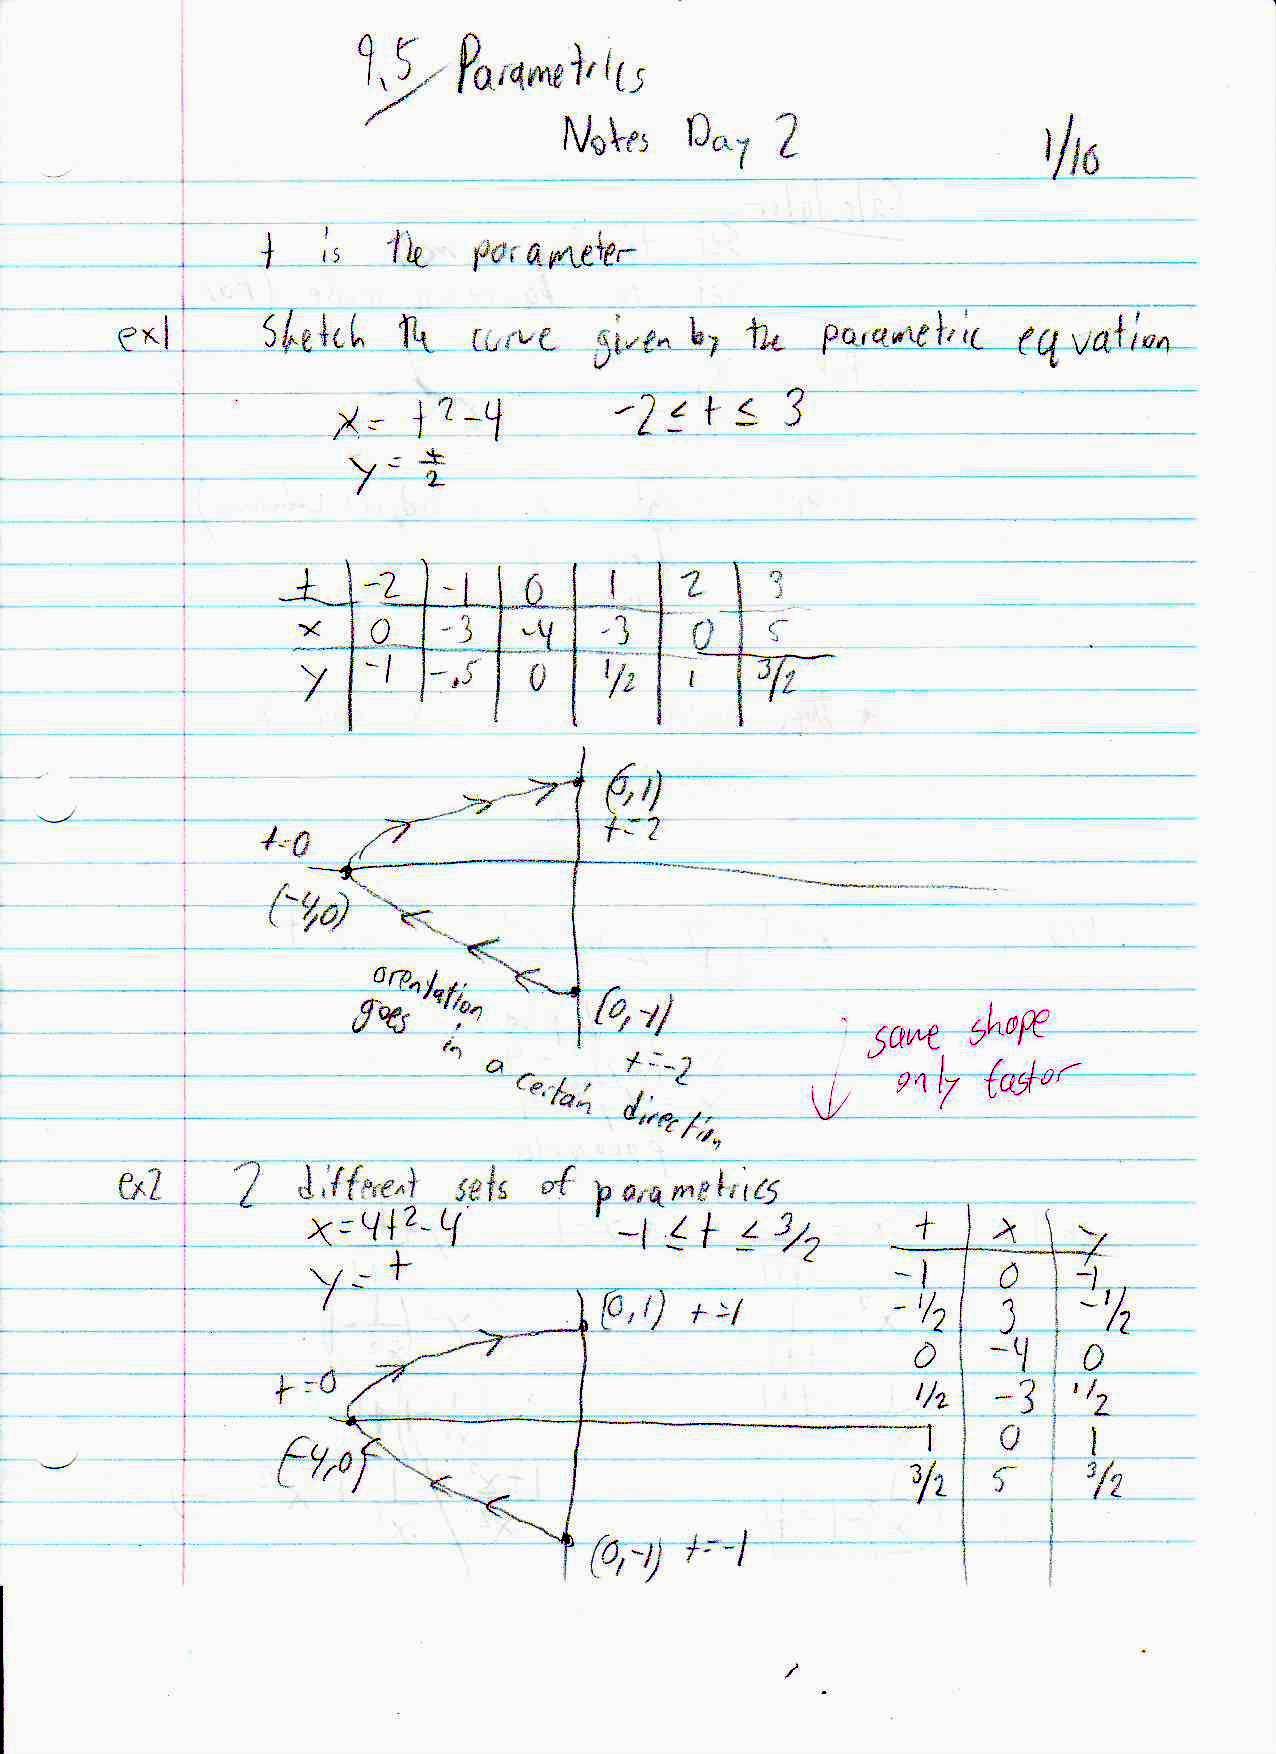 9.5 Parametrics
Notes Day 2
1/10
t is the parameter
ex1 Sketch the curve given by the parametric equation
x = t²-4 -2 ≤ t ≤ 3
y = t/2
t | -2 | -1 | 0 | 1 | 2 | 3
x | 0 | -3 | -4 | -3 | 0 | 5
y | -1 | -.5 | 0 | 1/2 | 1 | 3/2
(0,1)
t=2
t=0
(-4,0)
orentation
goes
in a certain direction
(0,-1)
t=-2
same shape
only faster
ex2 2 different sets of parametrics
x=4t²-4 -1 ≤ t ≤ 3/2
y=t
t | x | y
-1 | 0 | -1
-1/2 | 3 | -1/2
0 | -4 | 0
1/2 | -3 | 1/2
1 | 0 | 1
3/2 | 5 | 3/2
(0,1) t=1
t=0
(-4,0)
(0,-1) t=-1